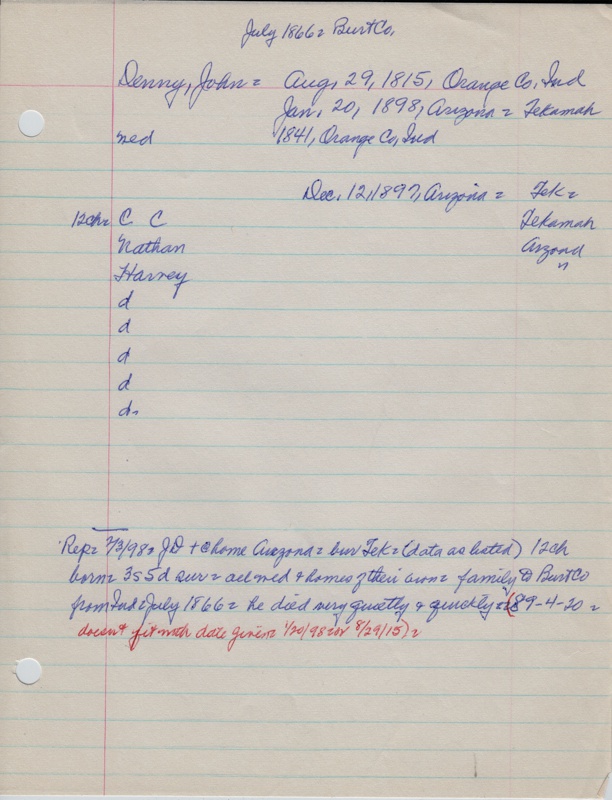 July 1866 = Burt Co.
Denny, John = Aug. 29, 1815, Orange Co, Ind
Jan. 20, 1898, Arizona = Tekamah
med 1841, Orange Co, Ind
Dec. 12, 1897, Arizona = Tek =
12ch = C C Tekamah
Nathan Arizona
Harvey "
d
d
d
d
d.
Rep = 2/3/98 = JD + @ home Arizona = bur Tek = (data as listed) 12ch
born = 3s 5d sur = all med + homes of their own = family to Burt Co
from Ind = July 1866 = he died very quietly + quickly = (89-4-20 =
doesn't fit with date given = 1/20/98 or 8/29/15) =